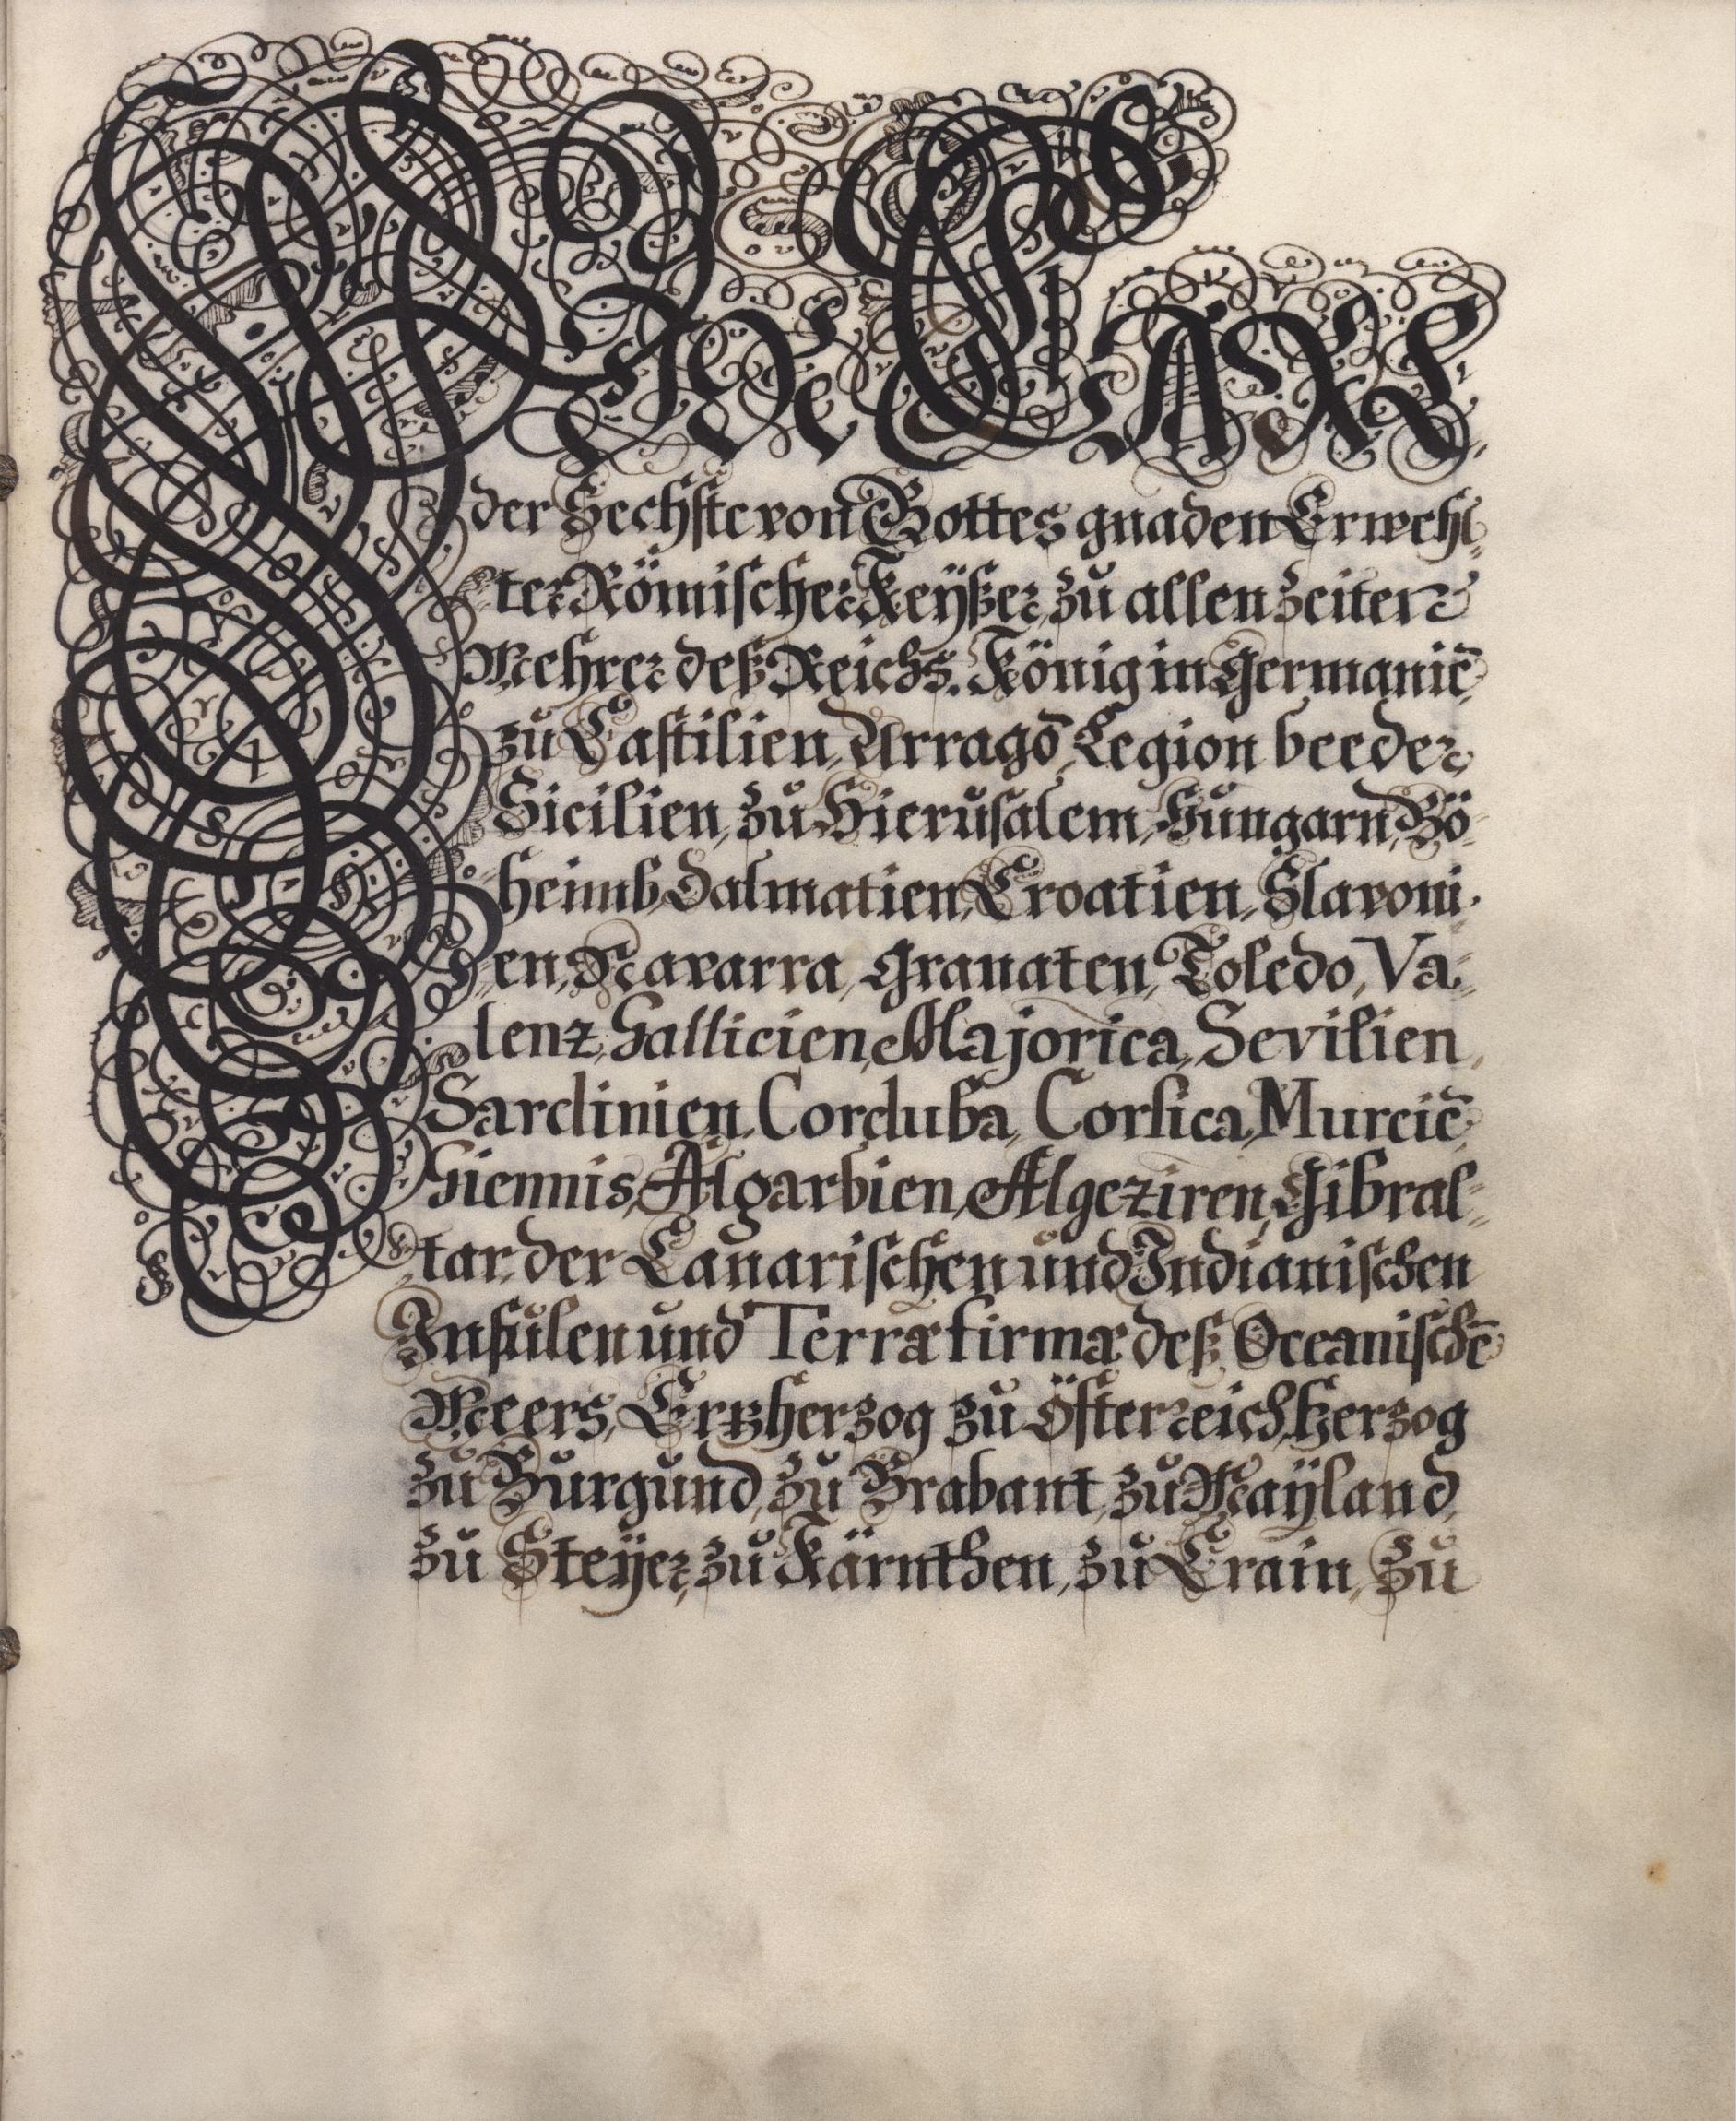 WIR CARL
der Sechste von Gottes gnaden Erwehl-
ter Römischer Keyßer, zu allen Zeiten
Mehrer deß Reichs. König in Germaniē,
zu Castilien, Arragō, Legion beeder
Sicilien, zu Hierusalem, Hungarn, Bö-
heimb, Dalmatien, Croatien, Slavoni-
en, Navarra, Granaten, Toledo, Va-
lenz, Gallicien, Majorica, Sevilien,
Sardinien, Corduba, Corsica, Murciē,
Giennis, Algarbien, Algeziren, Gibral-
tar, der Canarischen und Indianischen
Insulen und Terræ firmæ deß Oceanischē
Meers, Ertzherzog zu Österreich, Herzog
zu Burgund, zu Brabant, zu Mayland,
zu Steÿer, zu Kärnthen, zu Crain, zu